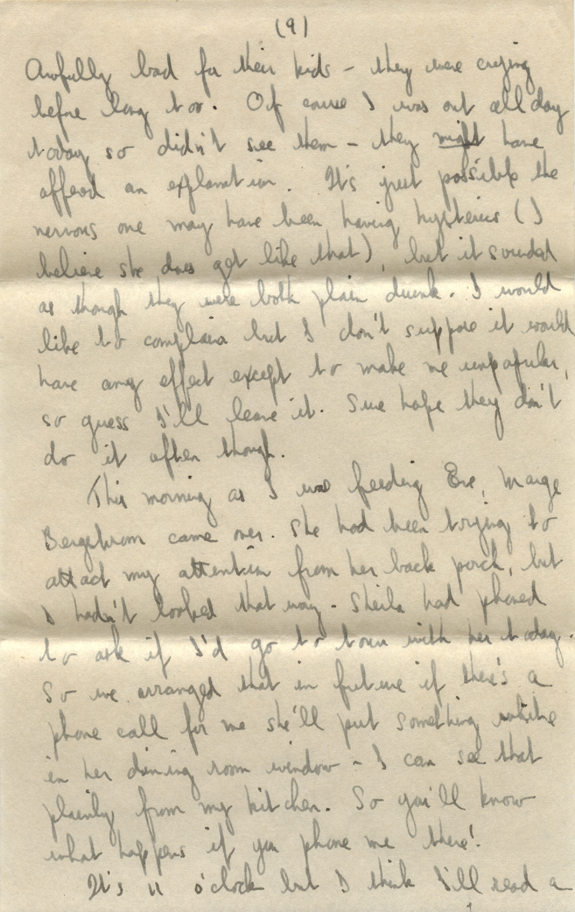 (9)
Awfully bad for their kids - they were crying
before long too. Of course I was out all day
today so didn't see them - they might have
offered an explanation. It's just possible the
nervous one may have been having hysterics (I
believe she does get like that), but it sounded
as though they were both plain drunk. I would
like to complain but I don't suppose it would
have any effect except to make me unpopular,
so guess I'll leave it. Sure hope they don't
do it often though.
This morning as I was feeding Eve, Marge
Bergstrom came over. She had been trying to
attact my attention from her back porch, but
I hadn't looked that way. Sheila had phoned
to ask if I'd go to town with her today.
So we arranged that in future if there's a
phone call for me she'll put something white
in her dining room window - I can see that
plainly from my kitchen. So you'll know
what happens if you phone me there!
It's 11 o'clock but I think I'll read a